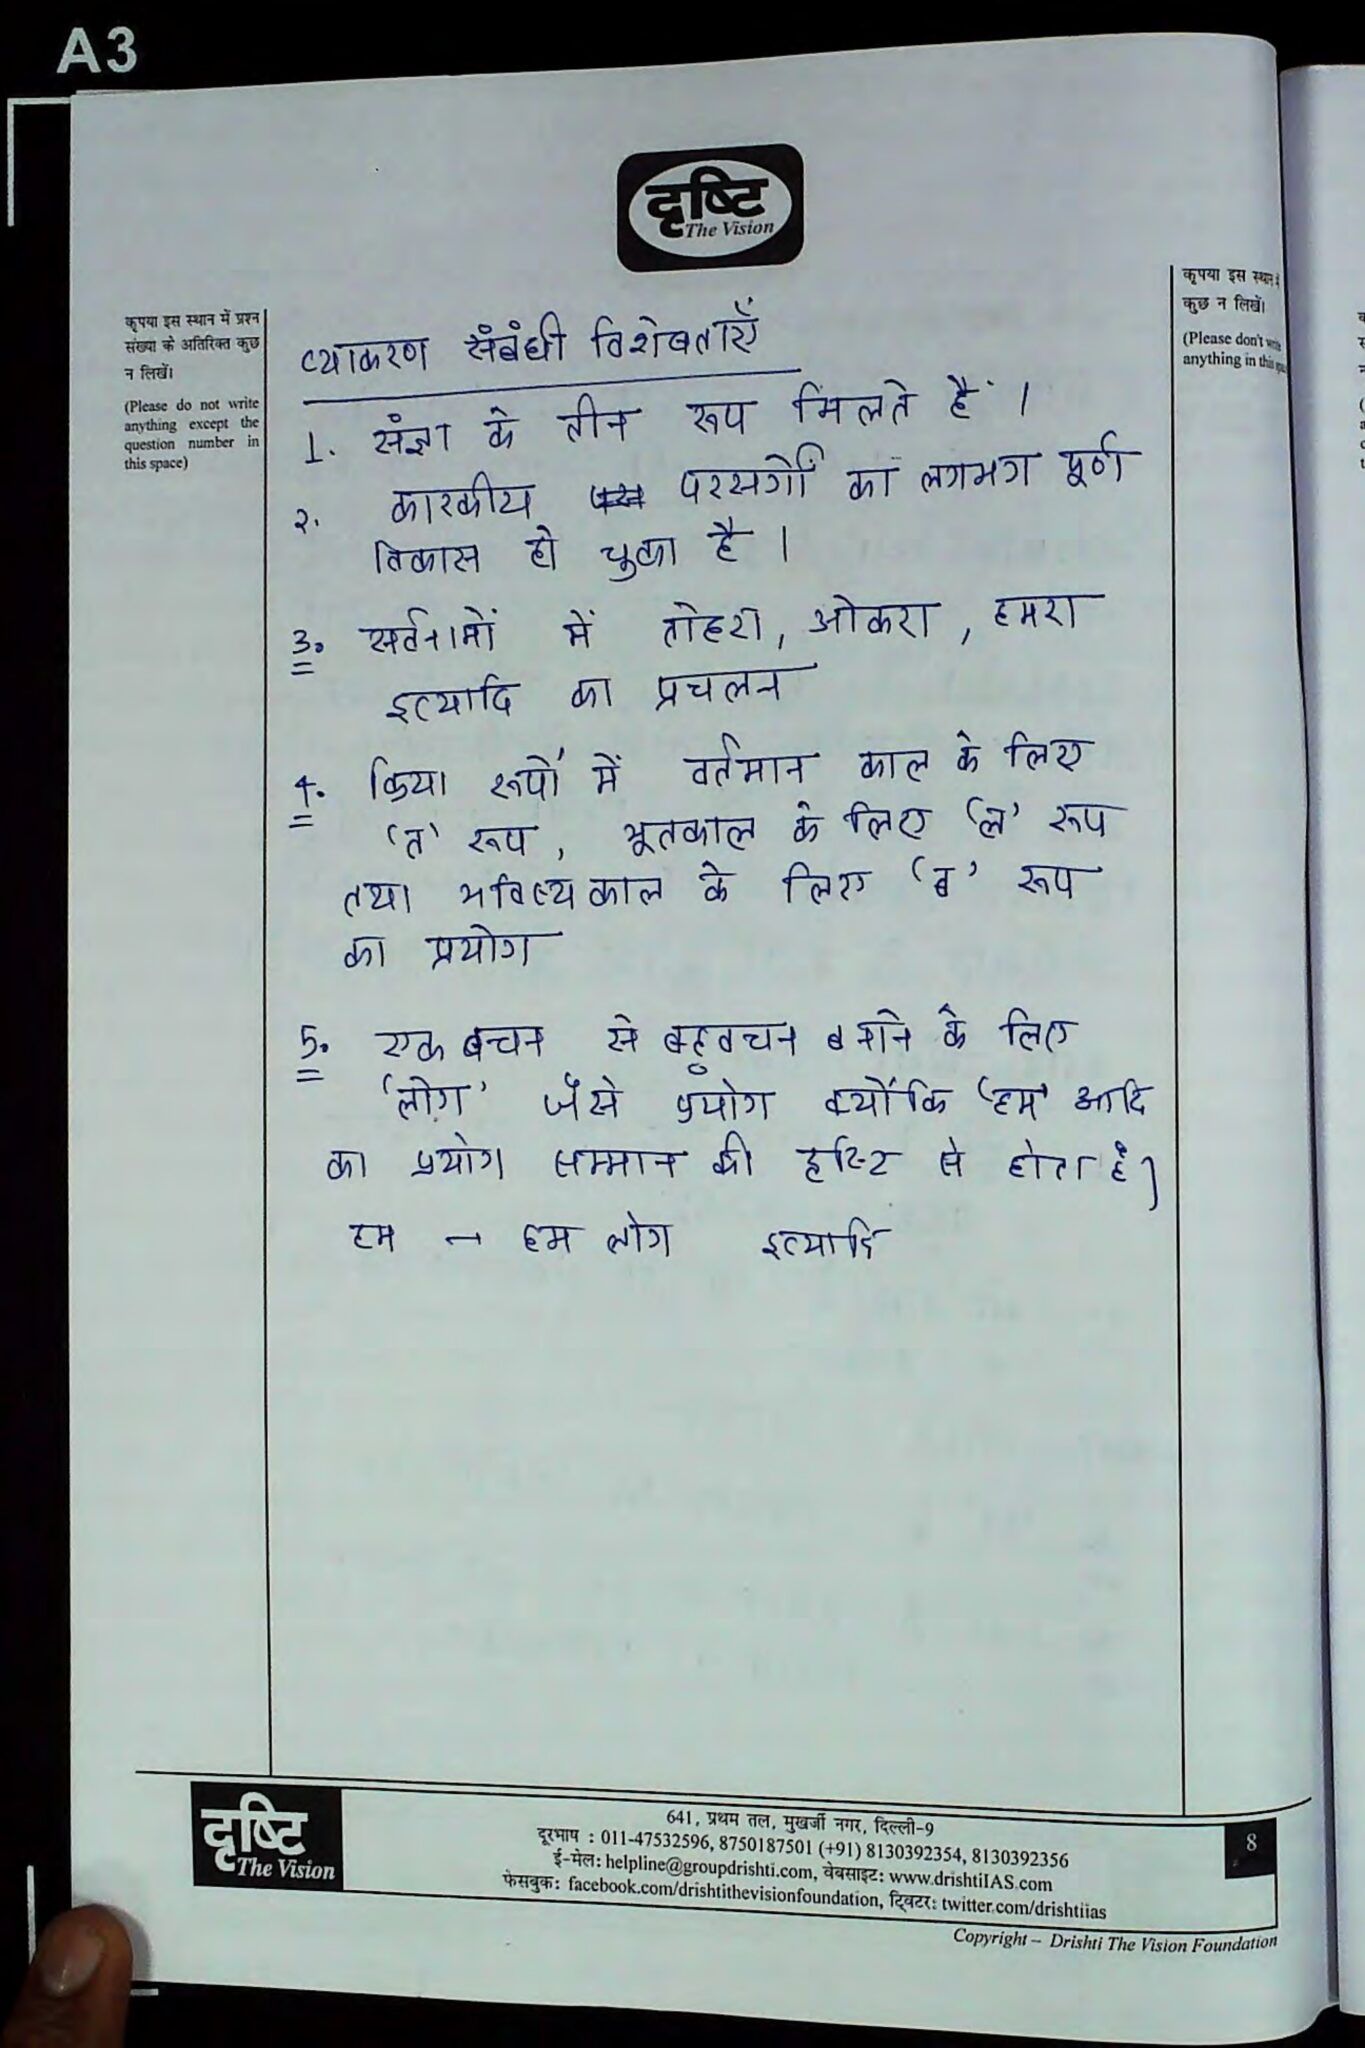 A3
दृष्टि
The Vision
कृपया इस स्थान में प्रश्न
संख्या के अतिरिक्त कुछ
न लिखें।
(Please do not write
anything except the
question number in
this space)
कृपया इस स्थान में
कुछ न लिखें।
(Please don't write
anything in this space
व्याकरण संबंधी विशेषताएँ
1. संज्ञा के तीन रूप मिलते हैं ।
२. कारकीय परसर्गों का लगभग पूर्ण
विकास हो चुका है ।
3. सर्वनामों में तोहरा, ओकरा, हमरा
इत्यादि का प्रचलन
4. क्रिया रूपों में वर्तमान काल के लिए
'त' रूप, भूतकाल के लिए 'ल' रूप
तथा भविष्यकाल के लिए 'ब' रूप
का प्रयोग
5. एक बचन से बहुवचन बनाने के लिए
'लोग' जैसे प्रयोग क्योंकि 'हम' आदि
का प्रयोग सम्मान की दृष्टि से होता है)
हम → हम लोग इत्यादि
दृष्टि
The Vision
641, प्रथम तल, मुखर्जी नगर, दिल्ली-9
दूरभाष : 011-47532596, 8750187501 (+91) 8130392354, 8130392356
ई-मेल: helpline@groupdrishti.com, वेबसाइट: www.drishtiIAS.com
फेसबुक: facebook.com/drishtithevisionfoundation, ट्विटर: twitter.com/drishtiias
8
Copyright – Drishti The Vision Foundation